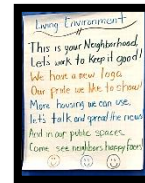 Living Environment
This is your Neighborhood.
Let's work to keep it good!
We have a new logo
Our pride we like to show!
More housing we can use,
let's talk and spread the news
And in our public spaces
Come see neighbors happy faces!